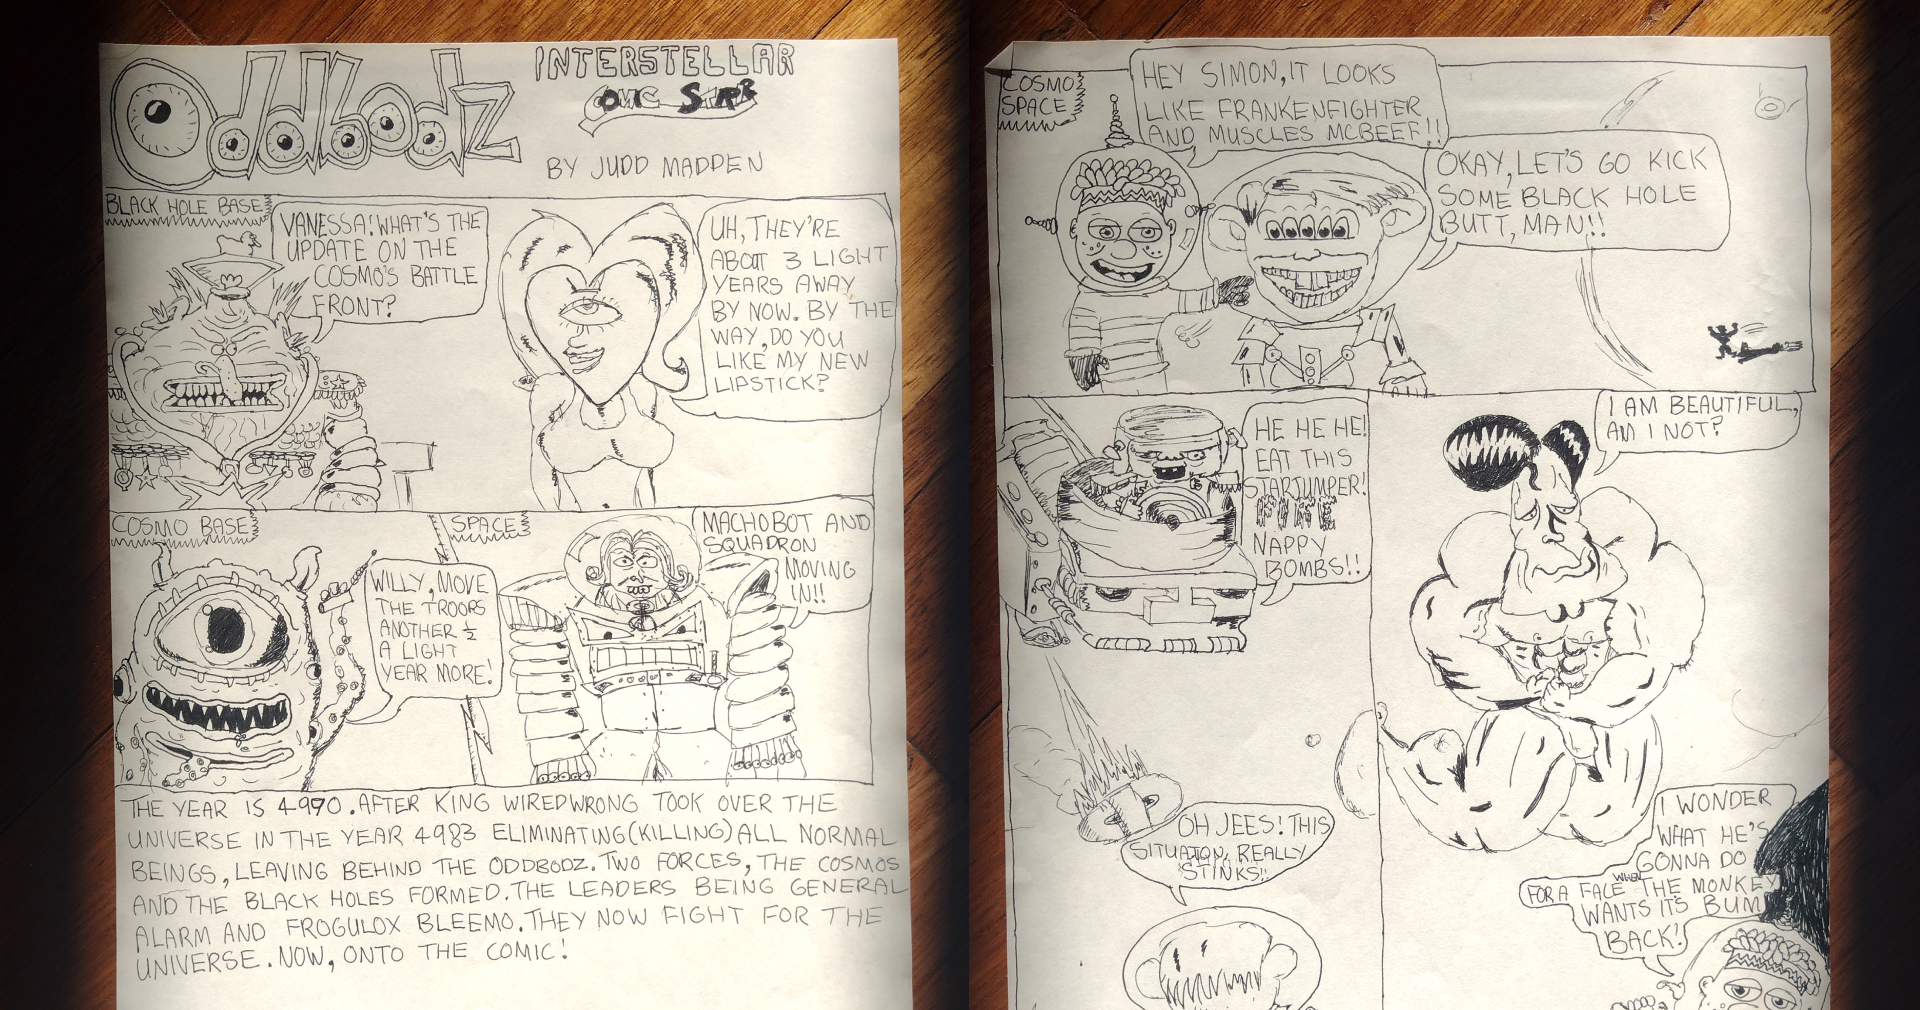 Oddbodz
INTERSTELLAR
BY JUDD MADDEN
BLACK HOLE BASE
VANESSA! WHAT'S THE
UPDATE ON THE
COSMO'S BATTLE
FRONT?
UH, THEY'RE
ABOUT 3 LIGHT
YEARS AWAY
BY NOW. BY THE
WAY, DO YOU
LIKE MY NEW
LIPSTICK?
COSMO BASE
WILLY, MOVE
THE TROOPS
ANOTHER ½
A LIGHT
YEAR MORE!
SPACE
MACHOBOT AND
SQUADRON
MOVING
IN!!
THE YEAR IS 4990. AFTER KING WIREDWRONG TOOK OVER THE
UNIVERSE IN THE YEAR 4983 ELIMINATING (KILLING) ALL NORMAL
BEINGS, LEAVING BEHIND THE ODDBODZ. TWO FORCES, THE COSMOS
AND THE BLACK HOLES FORMED. THE LEADERS BEING GENERAL
ALARM AND FROGULOX BLEEMO. THEY NOW FIGHT FOR THE
UNIVERSE. NOW, ONTO THE COMIC!
COSMO
SPACE
HEY SIMON, IT LOOKS
LIKE FRANKENFIGHTER
AND MUSCLES MCBEEF!!
OKAY, LET'S GO KICK
SOME BLACK HOLE
BUTT, MAN!!
HE HE HE!
EAT THIS
STARJUMPER!
FIRE
NAPPY
BOMBS!!
OH JEES! THIS
SITUATION, REALLY
STINKS!!
I AM BEAUTIFUL,
AM I NOT?
I WONDER
WHAT HE'S
GONNA DO
FOR A FACE WHEN THE MONKEY
WANTS ITS BUM
BACK!